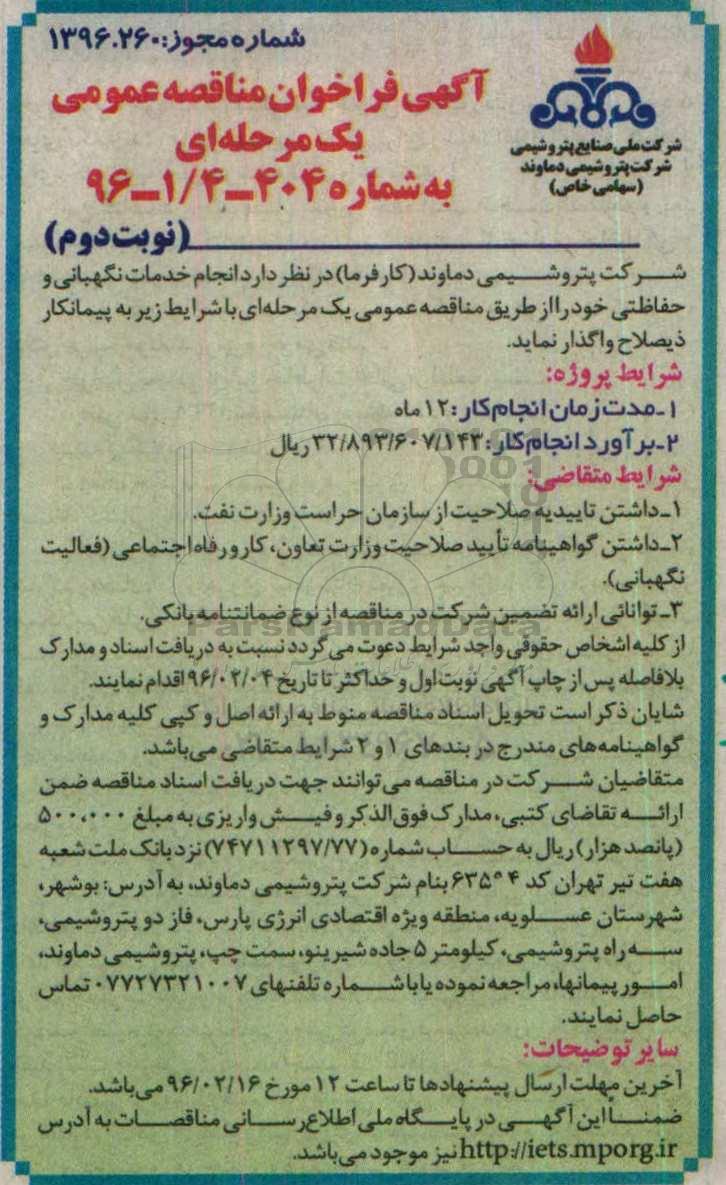 شماره مجوز: ۱۳۹۶.۲۶۰
شرکت ملی صنایع پتروشیمی
شرکت پتروشیمی دماوند
(سهامی خاص)
آگهی فراخوان مناقصه عمومی
یک مرحله‌ای
به شماره ۴۰۴-۱/۴-۹۶
(نوبت دوم)
شرکت پتروشیمی دماوند (کارفرما) در نظر دارد انجام خدمات نگهبانی و
حفاظتی خود را از طریق مناقصه عمومی یک مرحله‌ای با شرایط زیر به پیمانکار
ذیصلاح واگذار نماید.
شرایط پروژه:
۱-مدت زمان انجام کار: ۱۲ ماه
۲-برآورد انجام کار: ۳۲/۸۹۳/۶۰۷/۱۴۳ ریال
شرایط متقاضی:
۱-داشتن تاییدیه صلاحیت از سازمان حراست وزارت نفت.
۲-داشتن گواهینامه تأیید صلاحیت وزارت تعاون، کار و رفاه اجتماعی (فعالیت
نگهبانی).
۳- توانائی ارائه تضمین شرکت در مناقصه از نوع ضمانتنامه بانکی.
ParsNamadData
از کلیه اشخاص حقوقی واجد شرایط دعوت می گردد نسبت به دریافت اسناد و مدارک
بلافاصله پس از چاپ آگهی نوبت اول و حداکثر تا تاریخ ۹۶/۰۲/۰۴ اقدام نمایند.
شایان ذکر است تحویل اسناد مناقصه منوط به ارائه اصل و کپی کلیه مدارک و
گواهینامه‌های مندرج در بندهای ۱ و ۲ شرایط متقاضی می‌باشد.
متقاضیان شرکت در مناقصه می‌توانند جهت دریافت اسناد مناقصه ضمن
ارائه تقاضای کتبی، مدارک فوق الذکر و فیش واریزی به مبلغ ۵۰۰،۰۰۰
(پانصد هزار) ریال به حساب شماره (۷۴۷۱۱۲۹۷/۷۷) نزد بانک ملت شعبه
هفت تیر تهران کد ۶۳۵۰۴ بنام شرکت پتروشیمی دماوند، به آدرس: بوشهر،
شهرستان عسلویه، منطقه ویژه اقتصادی انرژی پارس، فاز دو پتروشیمی،
سه راه پتروشیمی، کیلومتر ۵ جاده شیرینو، سمت چپ، پتروشیمی دماوند،
امور پیمانها، مراجعه نموده یا با شماره تلفنهای ۰۷۷۲۷۳۲۱۰۰۷ تماس
حاصل نمایند.
سایر توضیحات:
آخرین مهلت ارسال پیشنهادها تا ساعت ۱۲ مورخ ۹۶/۰۲/۱۶ می باشد.
ضمنا این آگهی در پایگاه ملی اطلاع رسانی مناقصات به آدرس
http://iets.mporg.ir نیز موجود می‌باشد.